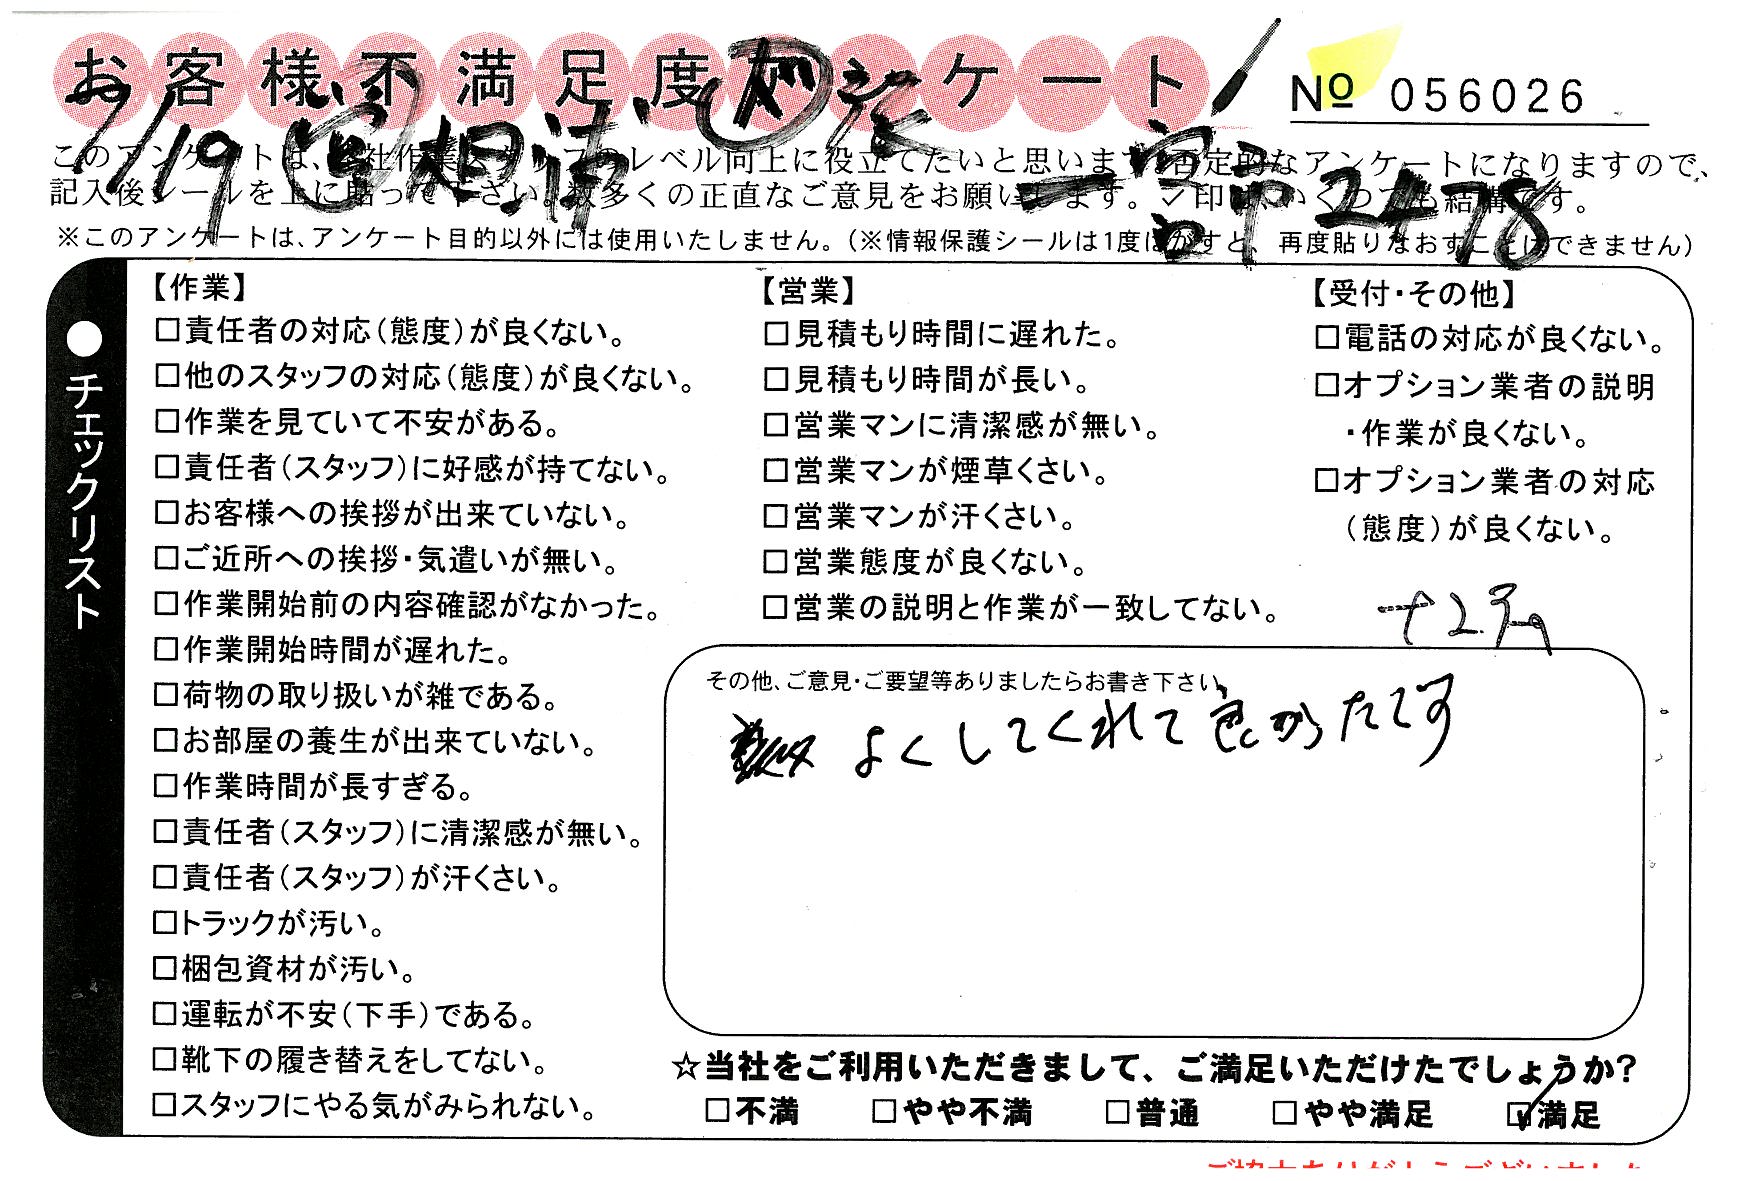 お客様不満足度アンケート
№ 056026
7/19
一宮 2478
このアンケートは、当社作業スタッフのレベル向上に役立てたいと思います。否定的なアンケートになりますので、
記入後シールを上に貼って下さい。数多くの正直なご意見をお願いします。✓印は、いくつでも結構です。
※このアンケートは、アンケート目的以外には使用いたしません。（※情報保護シールは1度はがすと、再度貼りなおすことはできません）
●チェックリスト
【作業】
□責任者の対応（態度）が良くない。
□他のスタッフの対応（態度）が良くない。
□作業を見ていて不安がある。
□責任者（スタッフ）に好感が持てない。
□お客様への挨拶が出来ていない。
□ご近所への挨拶・気遣いが無い。
□作業開始前の内容確認がなかった。
□作業開始時間が遅れた。
□荷物の取り扱いが雑である。
□お部屋の養生が出来ていない。
□作業時間が長すぎる。
□責任者（スタッフ）に清潔感が無い。
□責任者（スタッフ）が汗くさい。
□トラックが汚い。
□梱包資材が汚い。
□運転が不安（下手）である。
□靴下の履き替えをしてない。
□スタッフにやる気がみられない。
【営業】
□見積もり時間に遅れた。
□見積もり時間が長い。
□営業マンに清潔感が無い。
□営業マンが煙草くさい。
□営業マンが汗くさい。
□営業態度が良くない。
□営業の説明と作業が一致してない。
【受付・その他】
□電話の対応が良くない。
□オプション業者の説明
・作業が良くない。
□オプション業者の対応
（態度）が良くない。
その他、ご意見・ご要望等ありましたらお書き下さい。
よくしてくれて良かたです
☆当社をご利用いただきまして、ご満足いただけたでしょうか？
□不満 □やや不満 □普通 □やや満足 ☑満足
ご協力ありがとうございました